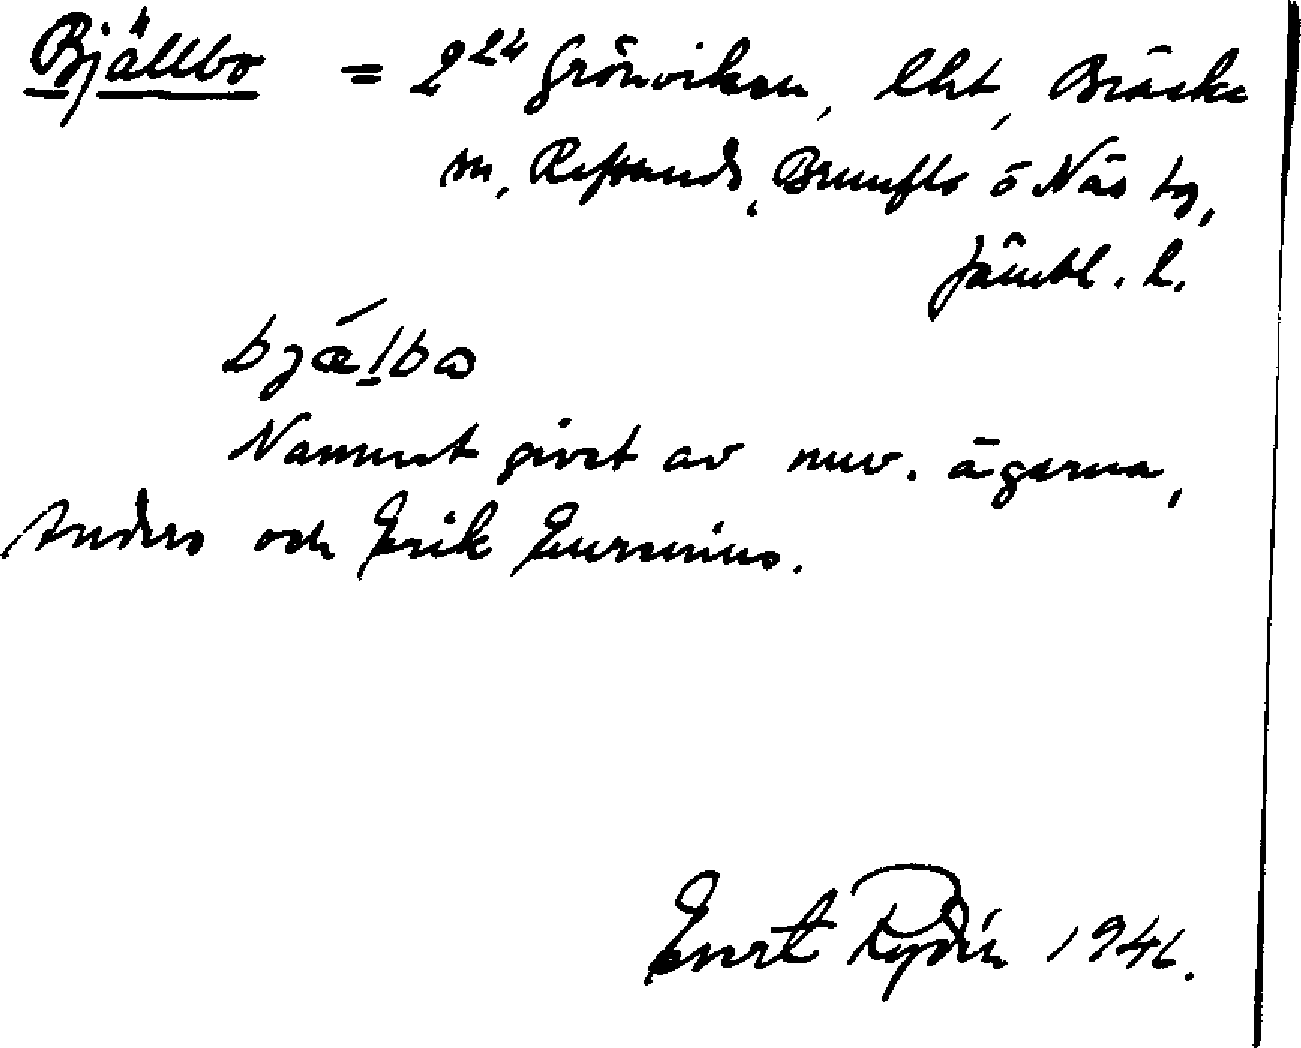 Bjällbo = 2²⁴ Grönviken, lht, Bräcke
sn, Refsunds, Brunflo o Näs tg,
Jämtl. l.
bjǽlbω
Namnet givet av nuv. ägarna,
Anders och Erik
Evert Rydin 1946.